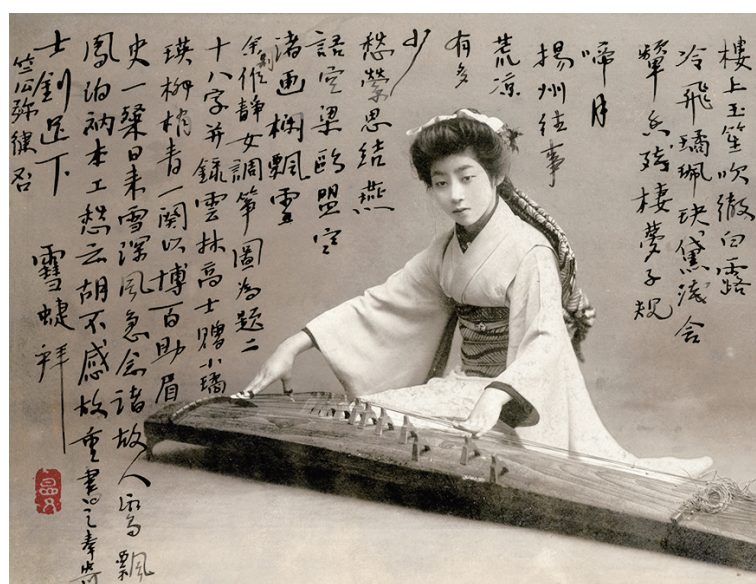 樓上玉笙吹徹白露
冷飛瓊珮玦黛淺含
顰香殘棲夢子規
啼月
揚州往事
荒凉
有多
少
愁縈思結燕
語空梁鷗盟空
渚画欄飄雪
余靜女調筝圖為題二
十八字并錄雲林高士贈小瓊
瑛柳梢青一闋以博百助眉
史一粲日来雪深風急念諸故人鸞飄
鳳泊衲本工愁云胡不感故重書之奉寄
士劍足下
雪蜨拜